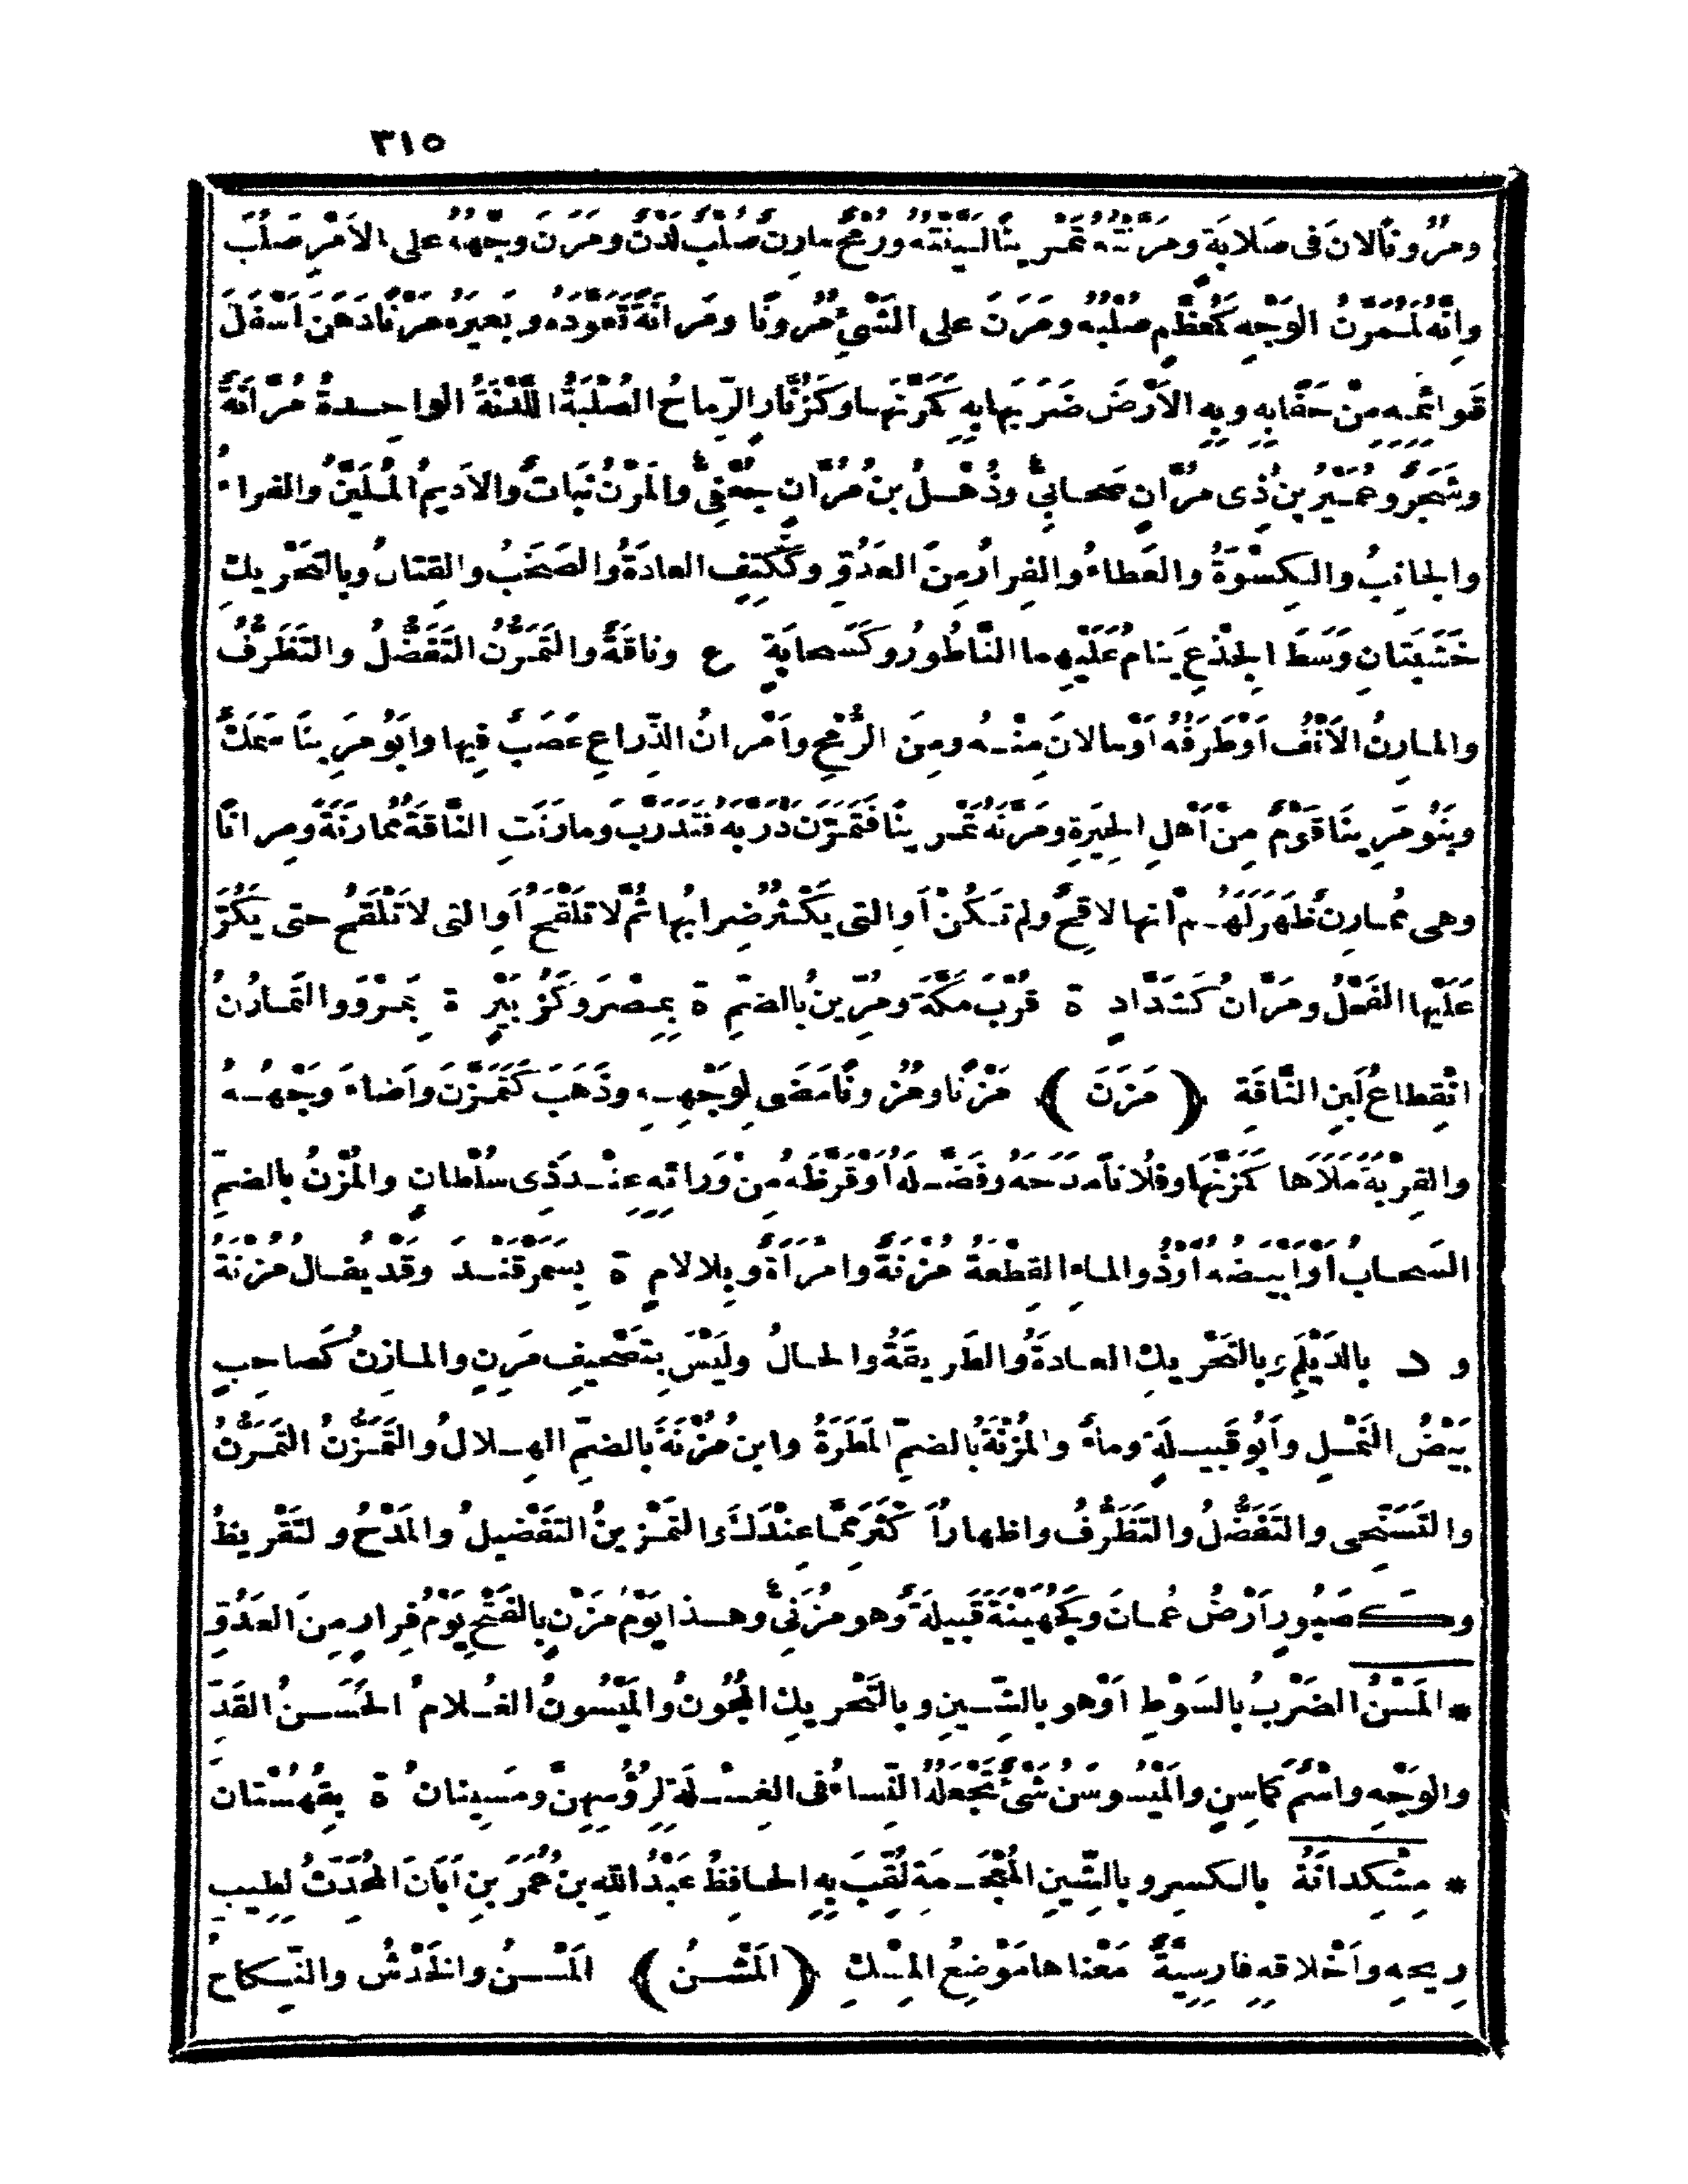 ٣١٥
ومُرُونًا لانَ فى صَلابَةٍ ومَرَّنْتُهُ تَمْرِينًا لَيَّنْتُهُ ورُمْحٌ مارِنٌ صُلْبٌ لَدْنٌ ومَرَنَ وجْهُهُ على الاَمْرِ صَلُبَ
وانَّهُ لَمُمَرَّنُ الوَجْهِ كَمُعَظَّمٍ صُلْبُهُ ومَرَنَ على الشَّىْءِ مُرُونًا ومَرانَةً تَعَوَّدَهُ وبَعِيرَهُ مَرْنًا دَهَنَ اَسْفَلَ
قَوائِمِهِ مِنْ حَفًا بِهِ وبِهِ الاَرْضَ ضَرَبَها بِهِ كَمَرَّنَها وكَزُنَّارٍ الرِّماحُ الصُّلْبَةُ اللَّدْنَةُ الواحِدةُ مُرَّانَةٌ
وشَجَرٌ وعُمَيْرُ بنُ ذِى مُرَّانٍ صَحابِىٌّ وذُهْلُ بنُ مُرَّانٍ جُعْفِىٌّ والمَرْنُ نَباتٌ والاَدِيمُ المُلَيَّنُ والفِراءُ
والجانِبُ والكِسْوَةُ والعَطاءُ والفِرارُ مِنَ العَدُوِّ وكَكَتِفٍ العادَةُ والصَّخَبُ والقِتالُ وبالتَّحْرِيكِ
خَشَبَتانِ وَسَطَ الجِذْعِ يَنامُ عَلَيْهِما النَّاطُورُ وكَسَحابَةٍ ع وناقَةٌ والتَّمَرُّنُ التَّفَضُّلُ والتَّظَرُّفُ
والمارِنُ الاَنْفُ اَوْ طَرَفُهُ اَوْ مالانَ مِنْهُ ومِنَ الرُّمْحِ واَمْرانُ الذِّراعِ عَصَبٌ فِيها واَبُو مَرِينَا سَمَكٌ
وبَنُو مَرِينَا قَوْمٌ مِنْ اَهْلِ الحِيرَةِ ومَرَّنَهُ تَمْرِينًا فَتَمَرَّنَ دَرَّبَهُ فتَدَرَّبَ ومارَنَتِ النَّاقَةُ مُمارَنَةً ومِرانًا
وهى مُمارِنٌ ظَهَرَ لَهُمْ أنها لاقِحٌ ولم تَكُنْ اَوِ التى يَكْثُرُ ضِرابُها ثُمَّ لا تَلْقَحُ اَوِ التى لا تَلْقَحُ حتى يَكُرَّ
عَلَيْها الفَحْلُ ومَرَّانُ كَشَدَّادٍ ة قُرْبَ مَكَّةَ ومُرِّينُ بالضمِّ ة بِمِصْرَ وكَزُبَيْرٍ ة بِمَرْوَ والتَّمارُنُ
انْقِطاعُ لَبَنِ النَّاقَةِ ﴿ مَزَنَ ﴾ مَزْنًا ومُزُونًا مَضَى لِوَجْهِهِ وذَهَبَ كَتَمَزَّنَ واَضاءَ وَجْهُهُ
والقِرْبَةَ مَلَاَها كَمَزَّنَها وفُلانًا مَدَحَهُ وفَضَّلَهُ اَوْ قَرَّظَهُ مِنْ وَرائِهِ عِنْدَ ذِى سُلْطانٍ والمُزْنُ بالضمِّ
السَّحابُ اَوْ اَبْيَضُهُ اَوْ ذُو الماءِ القِطْعَةُ مُزْنَةٌ وامْرَأَةٌ وبِلا لامٍ ة بِسَمَرْقَنْدَ وقَدْ يُقالُ مُزْنَةُ
و د بالدَّيْلَمِ وبالتَّحْرِيكِ العادَةُ والطَّرِيقَةُ والحالُ ولَيْسَ بِتَصْحِيفِ مَرِنٍ والمازِنُ كَصاحِبٍ
بَيْضُ النَّمْلِ واَبُو قَبِيلَةٍ وماءٌ والمُزْنَةُ بالضمِّ المَطَرَةُ وابنُ مُزْنَةَ بالضمِّ الهِلالُ والتَّمَزُّنُ التَّمَرُّنُ
والتَّسَخِّى والتَّفَضُّلُ والتَّظَرُّفُ واظهارُ اَكْثَرَ مِمَّا عِنْدَكَ والتَّمْزِينُ التَّفْضِيلُ والمَدْحُ والتَّقْرِيظُ
وكَصَبُورٍ اَرْضُ عُمانَ وكَجُهَيْنَةَ قَبِيلَةٌ وهو مُزَنِىٌّ وهذا يَوْمُ مَزْنٍ بالفَتْحِ يَوْمُ فِرارٍ مِنَ العَدُوِّ
* المَسْنُ الضَّرْبُ بالسَّوْطِ اَوْ هو بالشِّينِ وبالتَّحْرِيكِ المُجُونُ والمَيْسُونُ الغُلامُ الحَسَنُ القَدِّ
والوَجْهِ واسْمٌ كماسِنٍ والمَيْسُوسَنُ شَىْءٌ تَجْعَلُهُ النِّساءُ فى الغِسْلَةِ لِرُؤُسِهِنَّ ومَسِينانُ ة بِقُهُسْتانَ
* مِشْكِدانَةُ بالكسرِ وبالشِّينِ المُعْجَمَةِ لُقِّبَ بِهِ الحافِظُ عَبْدُ اللهِ بنُ عُمَرَ بنِ اَبَانَ المُحَدِّثُ لِطِيبِ
رِيحِهِ واَخْلاقِهِ فارِسِيَّةٌ مَعْناها مَوْضِعُ المِسْكِ ﴿ المَشْنُ ﴾ المَسْنُ والخَدْشُ والنِّكاحُ